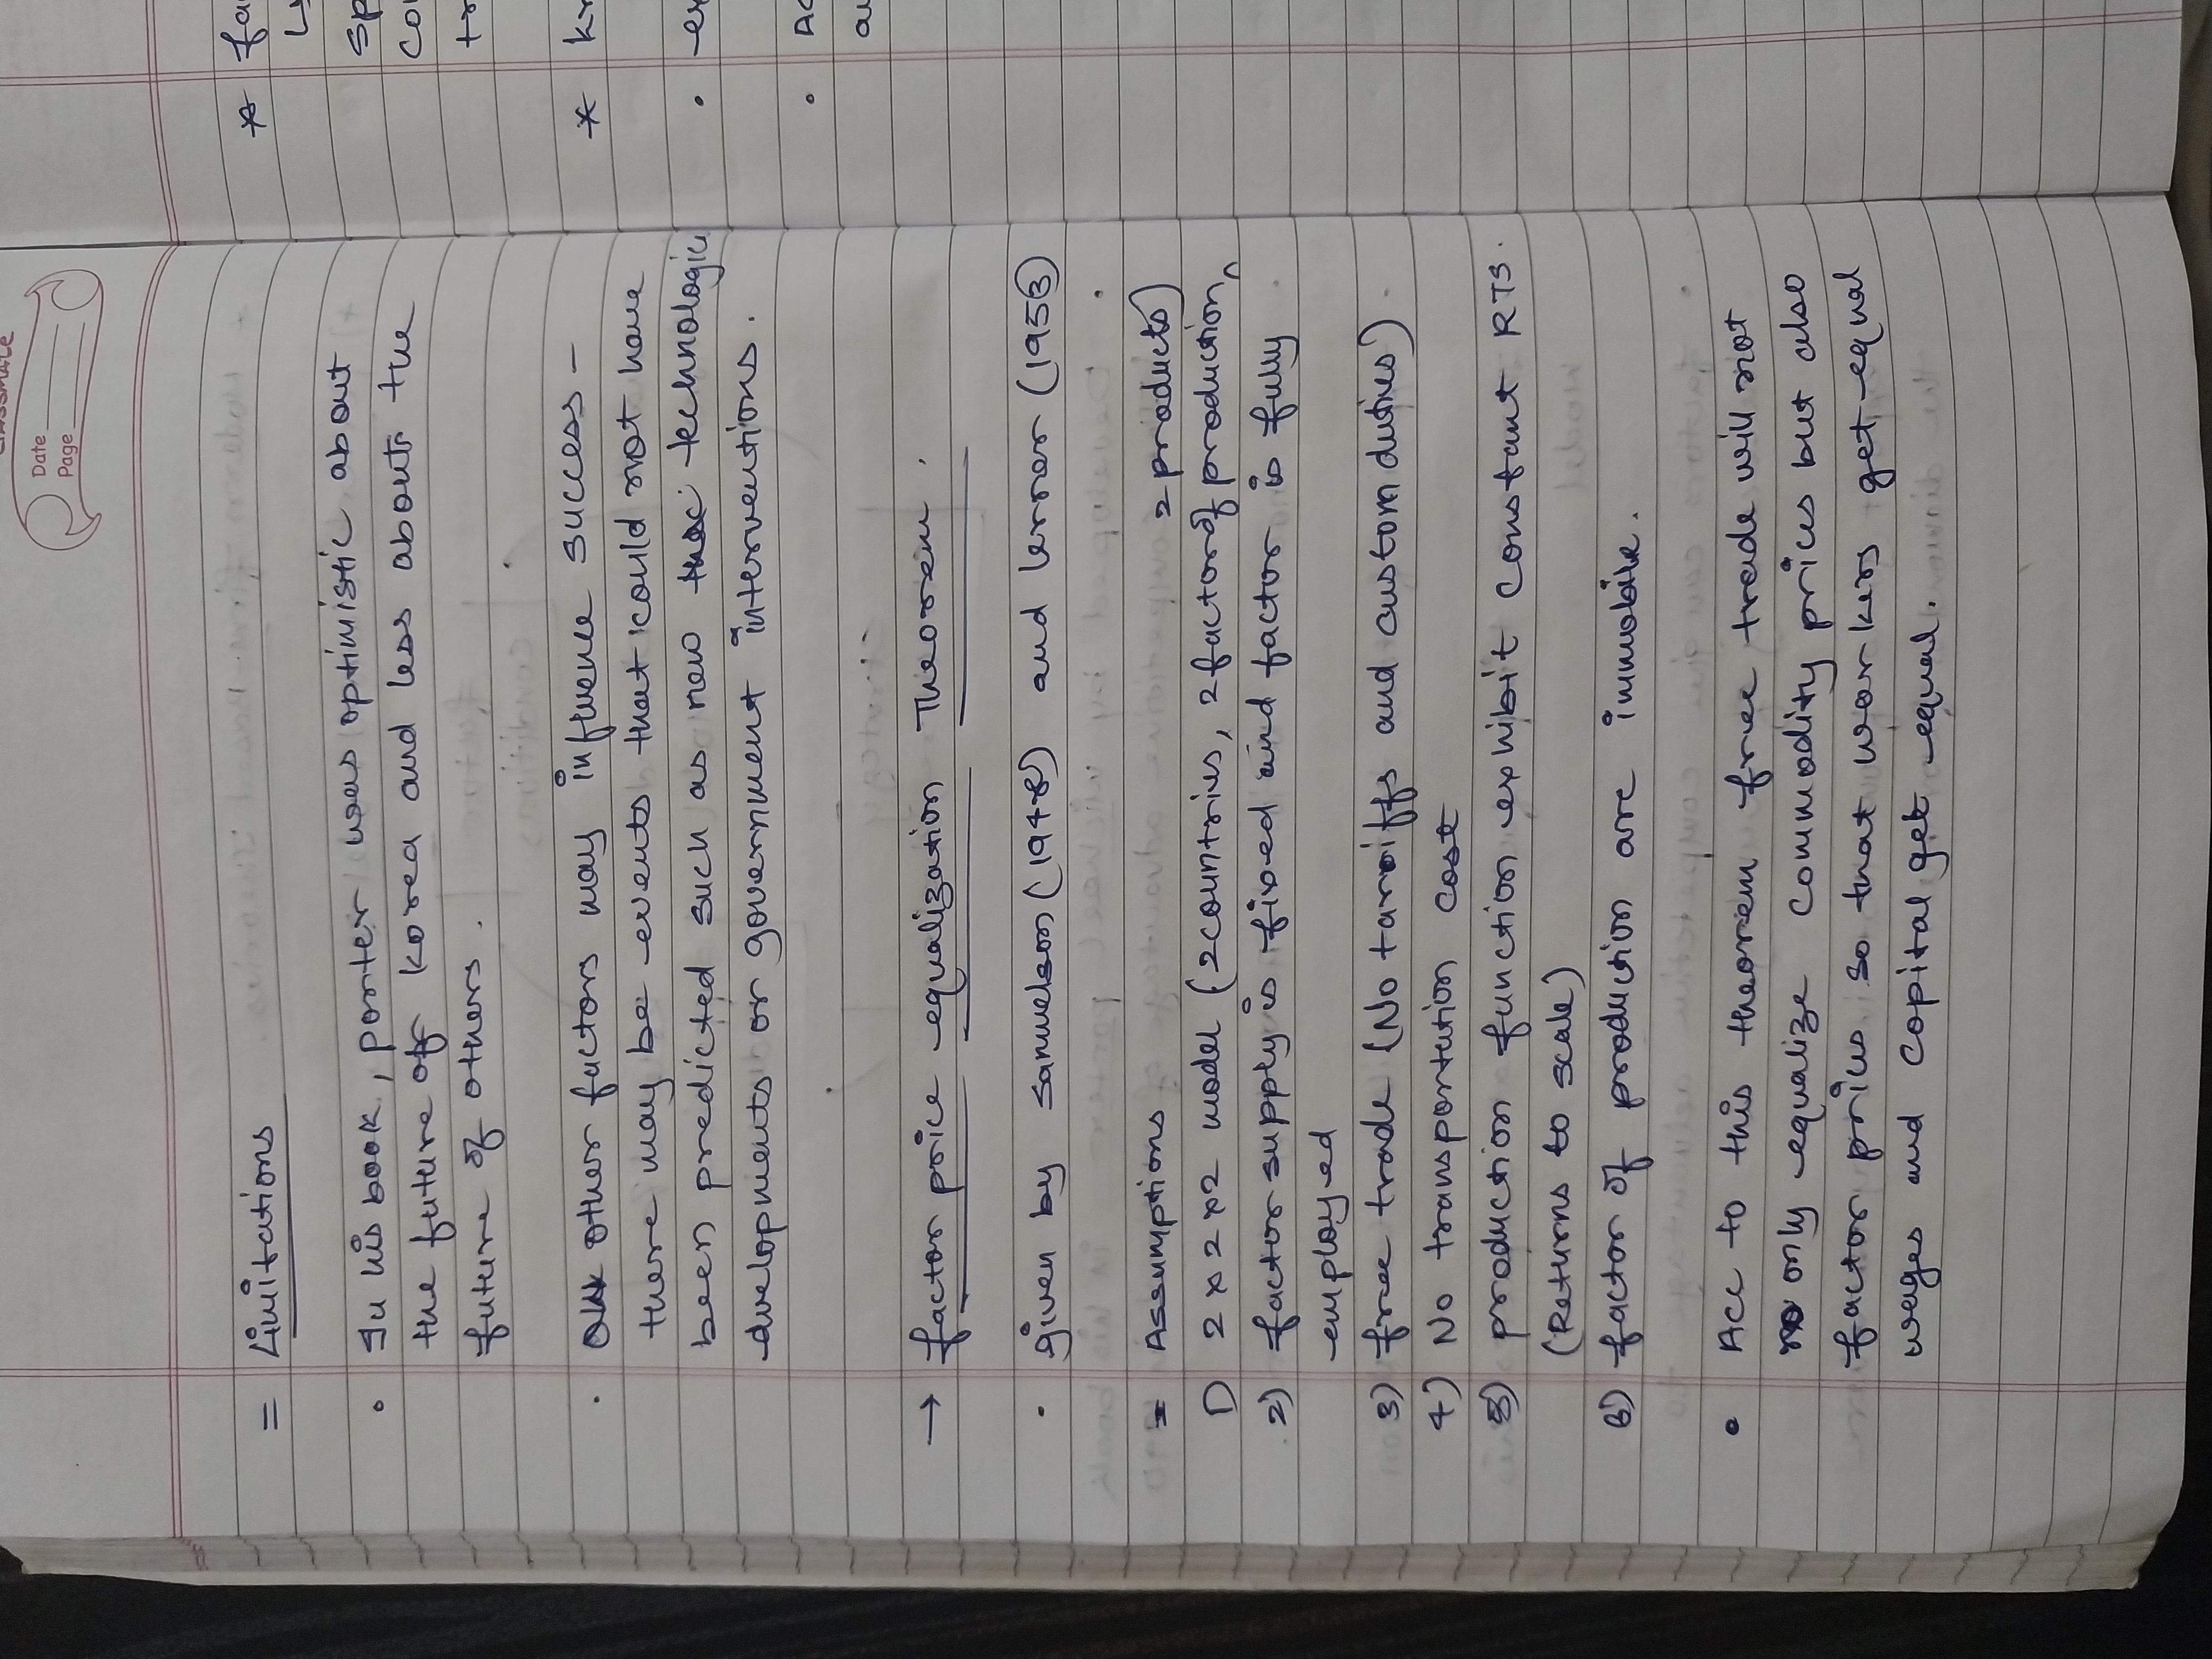 classmate
Date
Page
= Limitations
• In his book, porter was optimistic about
the future of korea and less about the
future of others.
• other factors may influence success -
there may be events that could not have
been predicted such as new technologic
developments or government interventions.
→ factor price equalization Theorem.
• given by Samuelson (1948) and lerner (1953)
= Assumptions
2 products)
1) 2 x 2 x 2 model (2 countries, 2 factor of production,
2) factor supply is fixed and factor is fully
employed
3) free trade (No tariffs and custom duties)
4) No transportation cost
5) production function exhibit constant RTS.
(Returns to scale)
6) factor of production are immobile.
• Acc to this theorem free trade will not
only equalize commodity prices but also
factor prices so that workers get equal
wages and capital get equal.
* fa
Sp
Co
tr
* kr
• ex
• Ac